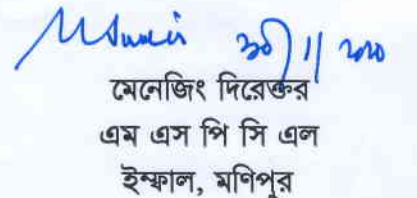 30/1/2020
মেনেজিং দিরেক্তর
এম এস পি সি এল
ইম্ফাল, মণিপুর